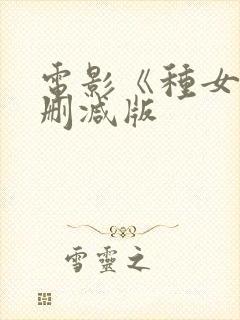 電影《種女
刪減版
雪靈之